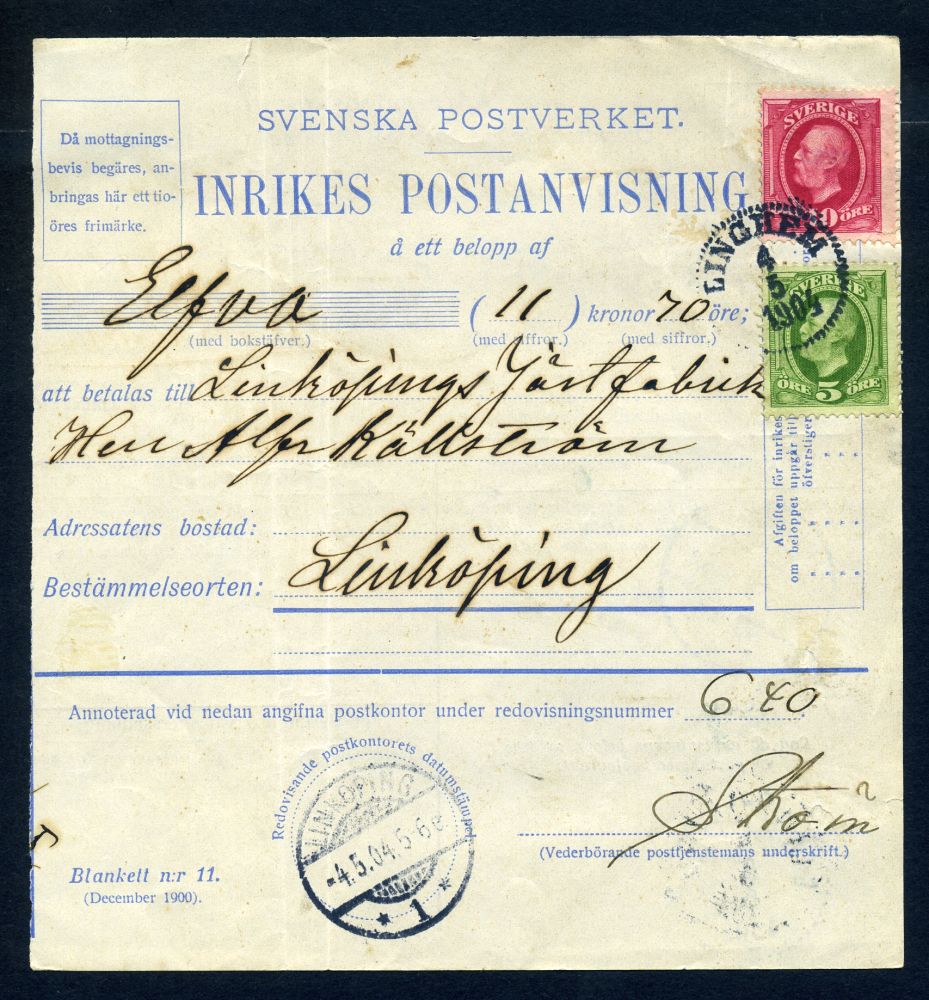 SVENSKA POSTVERKET.
Då mottagnings-
bevis begäres, an-
bringas här ett tio-
öres frimärke.
INRIKES POSTANVISNING
å ett belopp af
SVERIGE
ÖRE
LINGHEM
4
5
1904
SVERIGE
ÖRE 5 ÖRE
Elfva (11) kronor 70 öre;
(med bokstäfver.) (med siffror.) (med siffror.)
att betalas till Linköpings Jästfabrik
Herr Alfr Källström
Adressatens bostad:
Bestämmelseorten: Linköping
Afgiften för inrikes
om beloppet uppgår till
öfverstiger
Annoterad vid nedan angifna postkontor under redovisningsnummer 640
Redovisande postkontorets datumstämpel
LINKÖPING
-4.5.04.5-6e
* 1 *
Ström
(Vederbörande posttjenstemans underskrift.)
Blankett n:r 11.
(December 1900).